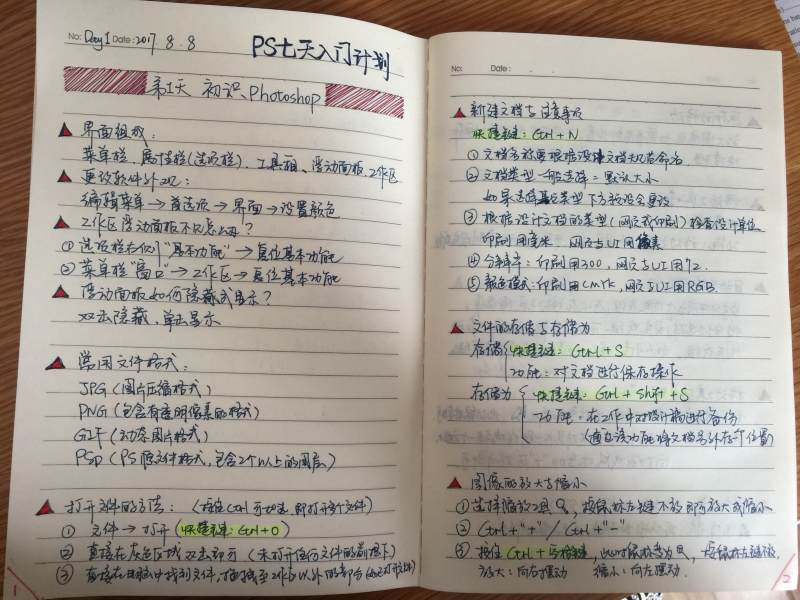 No: Day1 Date: 2017. 8. 8
PS七天入门计划
第1天 初识Photoshop
界面组成:
菜单栏、属性栏(选项栏)、工具箱、浮动面板、工作区
更改软件外观:
编辑菜单→首选项→界面→设置颜色
工作区浮动面板不见怎么办?
①选项栏右侧"基本功能"→复位基本功能
②菜单栏"窗口"→工作区→复位基本功能
浮动面板如何隐藏或显示?
双击隐藏,单击显示
常用文件格式:
JPG(图片压缩格式)
PNG(包含有透明像素的格式)
GIF(动态图片格式)
PSD(PS源文件格式,包含2个以上的图层)
打开文件的方法:(按住Ctrl可加选,即打开多个文件)
①文件→打开(快捷键:Ctrl+O)
②直接在灰色区域双击即可(未打开任何文件的前提下)
③直接在电脑中找到文件,拖拽至工作区以外的部分(如已打开文件)
1
No: Date:
新建文档与注意事项
快捷键:Ctrl+N
①文档名称要根据设计文档规范命名
②文档类型一般选择:默认大小
如果选择其它类型下方就会更改
③根据设计文档的类型(网页或印刷)检查设计单位
印刷用毫米,网页与UI用像素
④分辨率:印刷用300,网页与UI用72.
⑤颜色模式:印刷用CMYK,网页与UI用RGB.
文件的存储与存储为
存储 快捷键:Ctrl+S
功能:对文档进行保存操作
存储为 快捷键:Ctrl+Shift+S
功能:在工作中对设计稿进行备份
(通过该功能将文档另外存个位置)
图像的放大与缩小
①选择缩放工具,按鼠标左键不放即可放大或缩小
②Ctrl+"+" / Ctrl+"-"
③按住Ctrl+空格键,此时鼠标变为,按鼠标左键拖拽
放大:向右摆动 缩小:向左摆动.
2